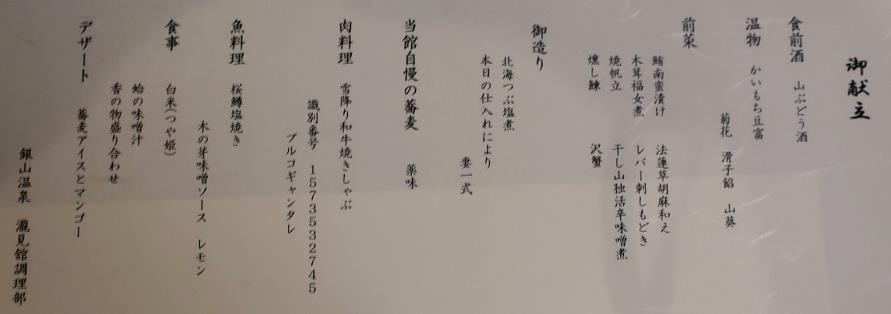 御献立
食前酒　山ぶどう酒
温物　かいもち豆富
菊花　滑子餡　山葵
前菜
鮪南蛮漬け　法蓮草胡麻和え
木茸福女煮　レバー刺しもどき
焼帆立　干し山独活辛味噌煮
燻し鰊　沢蟹
御造り
北海つぶ塩煮
本日の仕入れにより
妻一式
当館自慢の蕎麦　薬味
肉料理　雪降り和牛焼きしゃぶ
識別番号　1573532745
プルコギャンタレ
魚料理　桜鱒塩焼き
木の芽味噌ソース　レモン
食事　白米(つや姫)
蛤の味噌汁
香の物盛り合わせ
デザート　蕎麦アイスとマンゴー
銀山温泉　瀧見館調理部